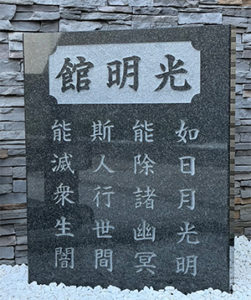 光明館
如日月光明
能除諸幽冥
斯人行世間
能滅衆生闇